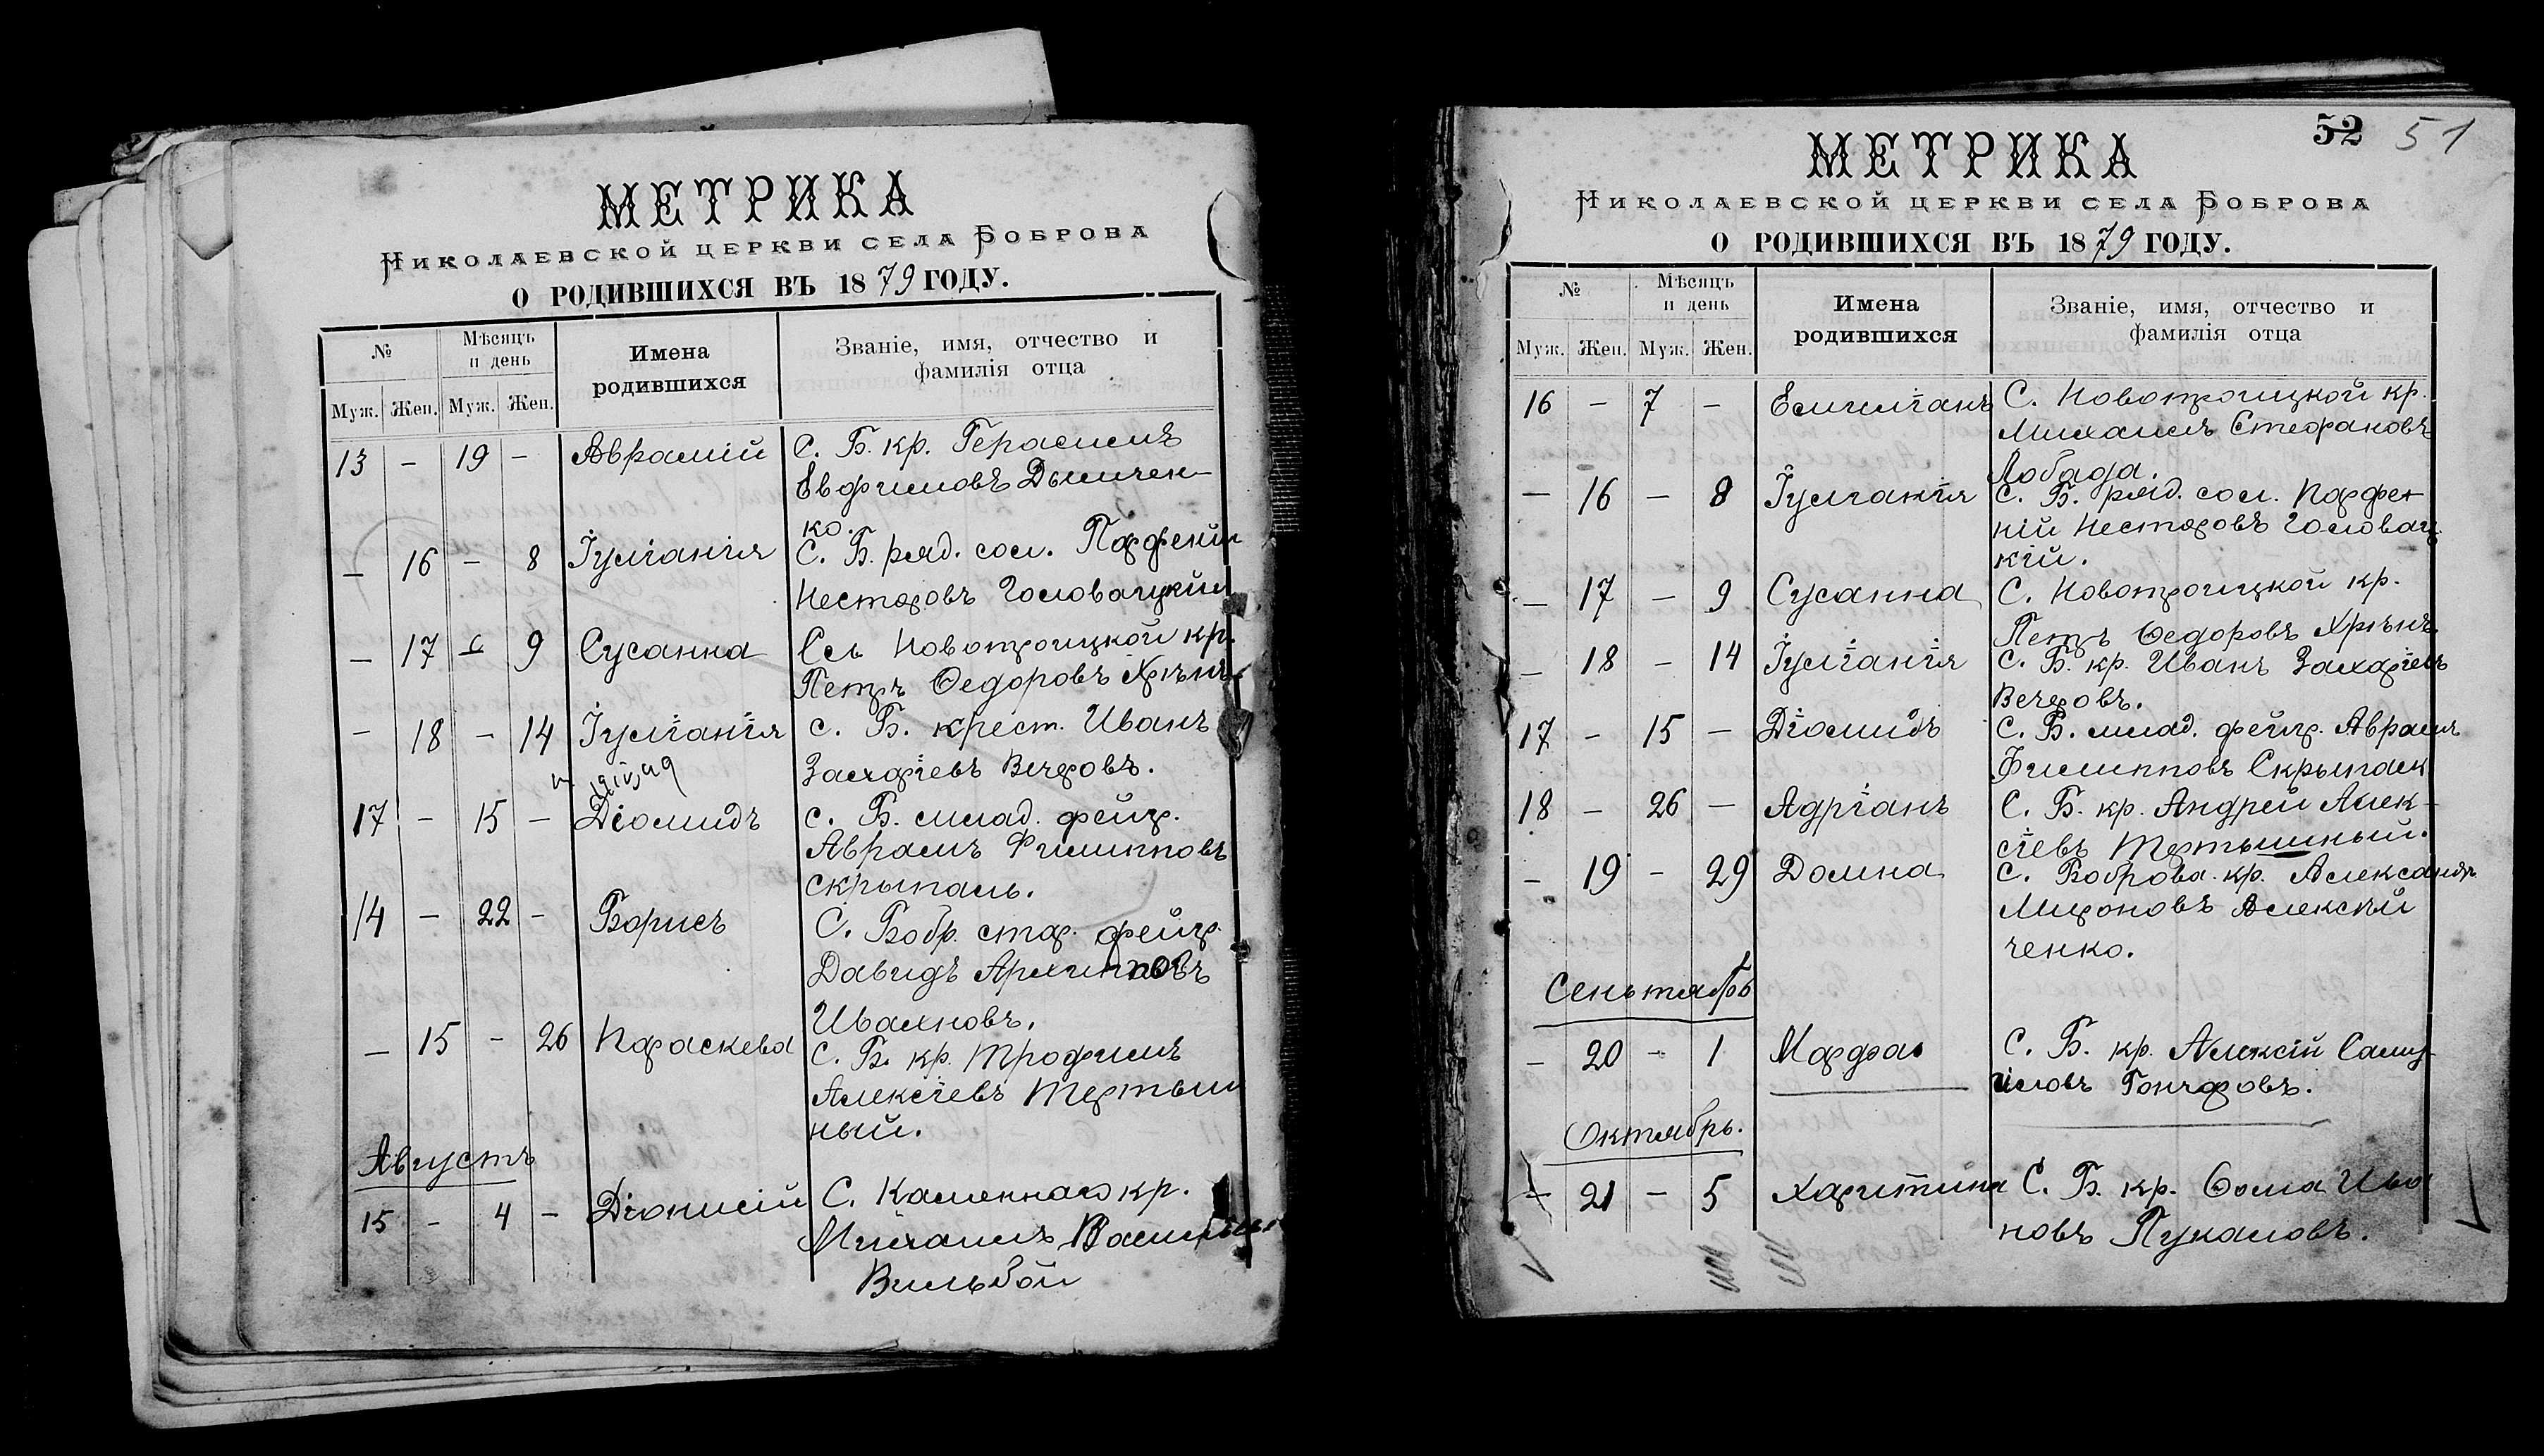 МЕТРИКА
Николаевской церкви села Боброва
О РОДИВШИХСЯ ВЪ 1879 ГОДУ.
№
Мѣсяцъ и день
Имена родившихся
Званіе, имя, отчество и фамилія отца
Муж. Жен. Муж. Жен.
13 – 19 – Аврамій С. Б. кр. Герасимъ
Евфимовъ Дымчен-
ко.
– 16 – 8 Іуліанія С. Б. ряд. сол. Парфеній
Несторовъ Головацкій
– 17 – 9 Сусанна Сл. Новотроицкой кр.
Петръ Ѳедоровъ Хрѣнъ
– 18 – 14 Іуліанія с. Б. крест. Иванъ
Захаріевъ Вечеровъ.
17 – 15 – Діомидъ с. Б. млад. фейер.
Аврамъ Филипповъ
Скрыпаль.
14 – 22 – Борисъ С. Бобр. стар. фейер.
Давидъ Архиповъ
Ивахновъ.
– 15 – 26 Параскева С. Б. кр. Трофимъ
Алексіевъ Тертыш
ный.
Августъ
15 – 4 – Діонисій С. Каменнаго кр.
Михаилъ Васильевъ
Вильбой
52 51
МЕТРИКА
Николаевской церкви села Боброва
О РОДИВШИХСЯ ВЪ 1879 ГОДУ.
№
Мѣсяцъ и день
Имена родившихся
Званіе, имя, отчество и фамилія отца
Муж. Жен. Муж. Жен.
16 – 7 – Емиліанъ С. Новотроицкой кр.
Михаилъ Стефановъ
Лобада.
– 16 – 8 Іуліанія С. Б. ряд. сол. Парфе-
ній Несторовъ Головац
кій.
– 17 – 9 Сусанна С. Новотроицкой кр.
Петръ Ѳедоровъ Хрѣнъ
– 18 – 14 Іуліанія С. Б. кр. Иванъ Захаріевъ
Вечеровъ.
17 – 15 – Діомидъ С. Б. млад. фейер. Аврамъ
Филипповъ Скрыпаль
18 – 26 – Адріанъ С. Б. кр. Андрей Алек-
сіевъ Тертышный.
– 19 – 29 Домна С. Боброва кр. Александръ
Мироновъ Алексѣй
ченко.
Сеньтябрь
– 20 – 1 Марфа С. Б. кр. Алексій Саму-
иловъ Гончаровъ.
Октябрь.
– 21 – 5 Харитина С. Б. кр. Ѳома Ива
новъ Пукаловъ.